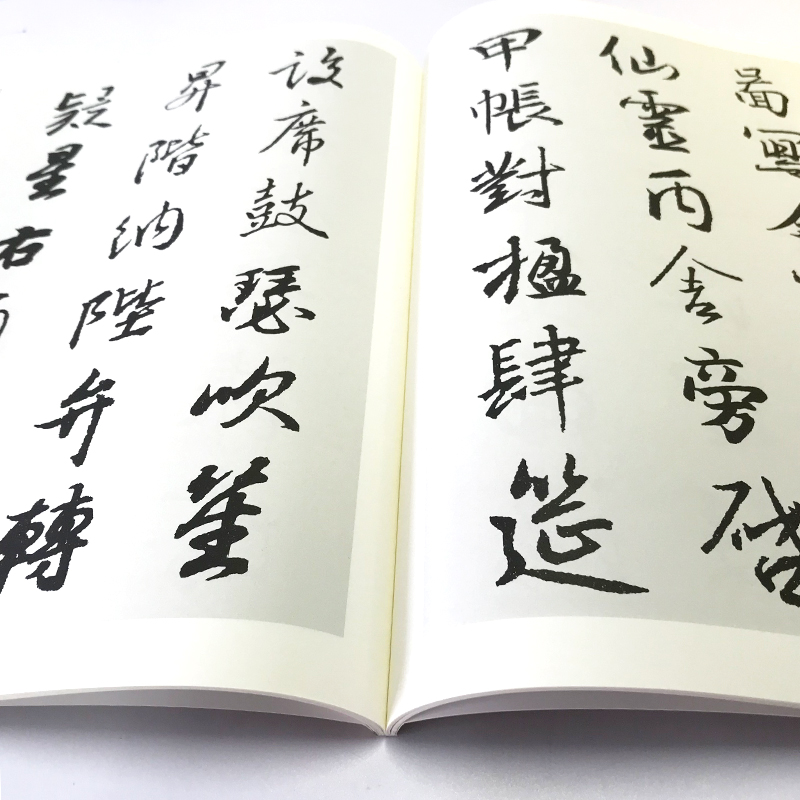 啚寫禽
仙靈丙舍旁啓
甲帳對楹肆筵
設席鼓瑟吹笙
昇階納陛弁轉
疑星右